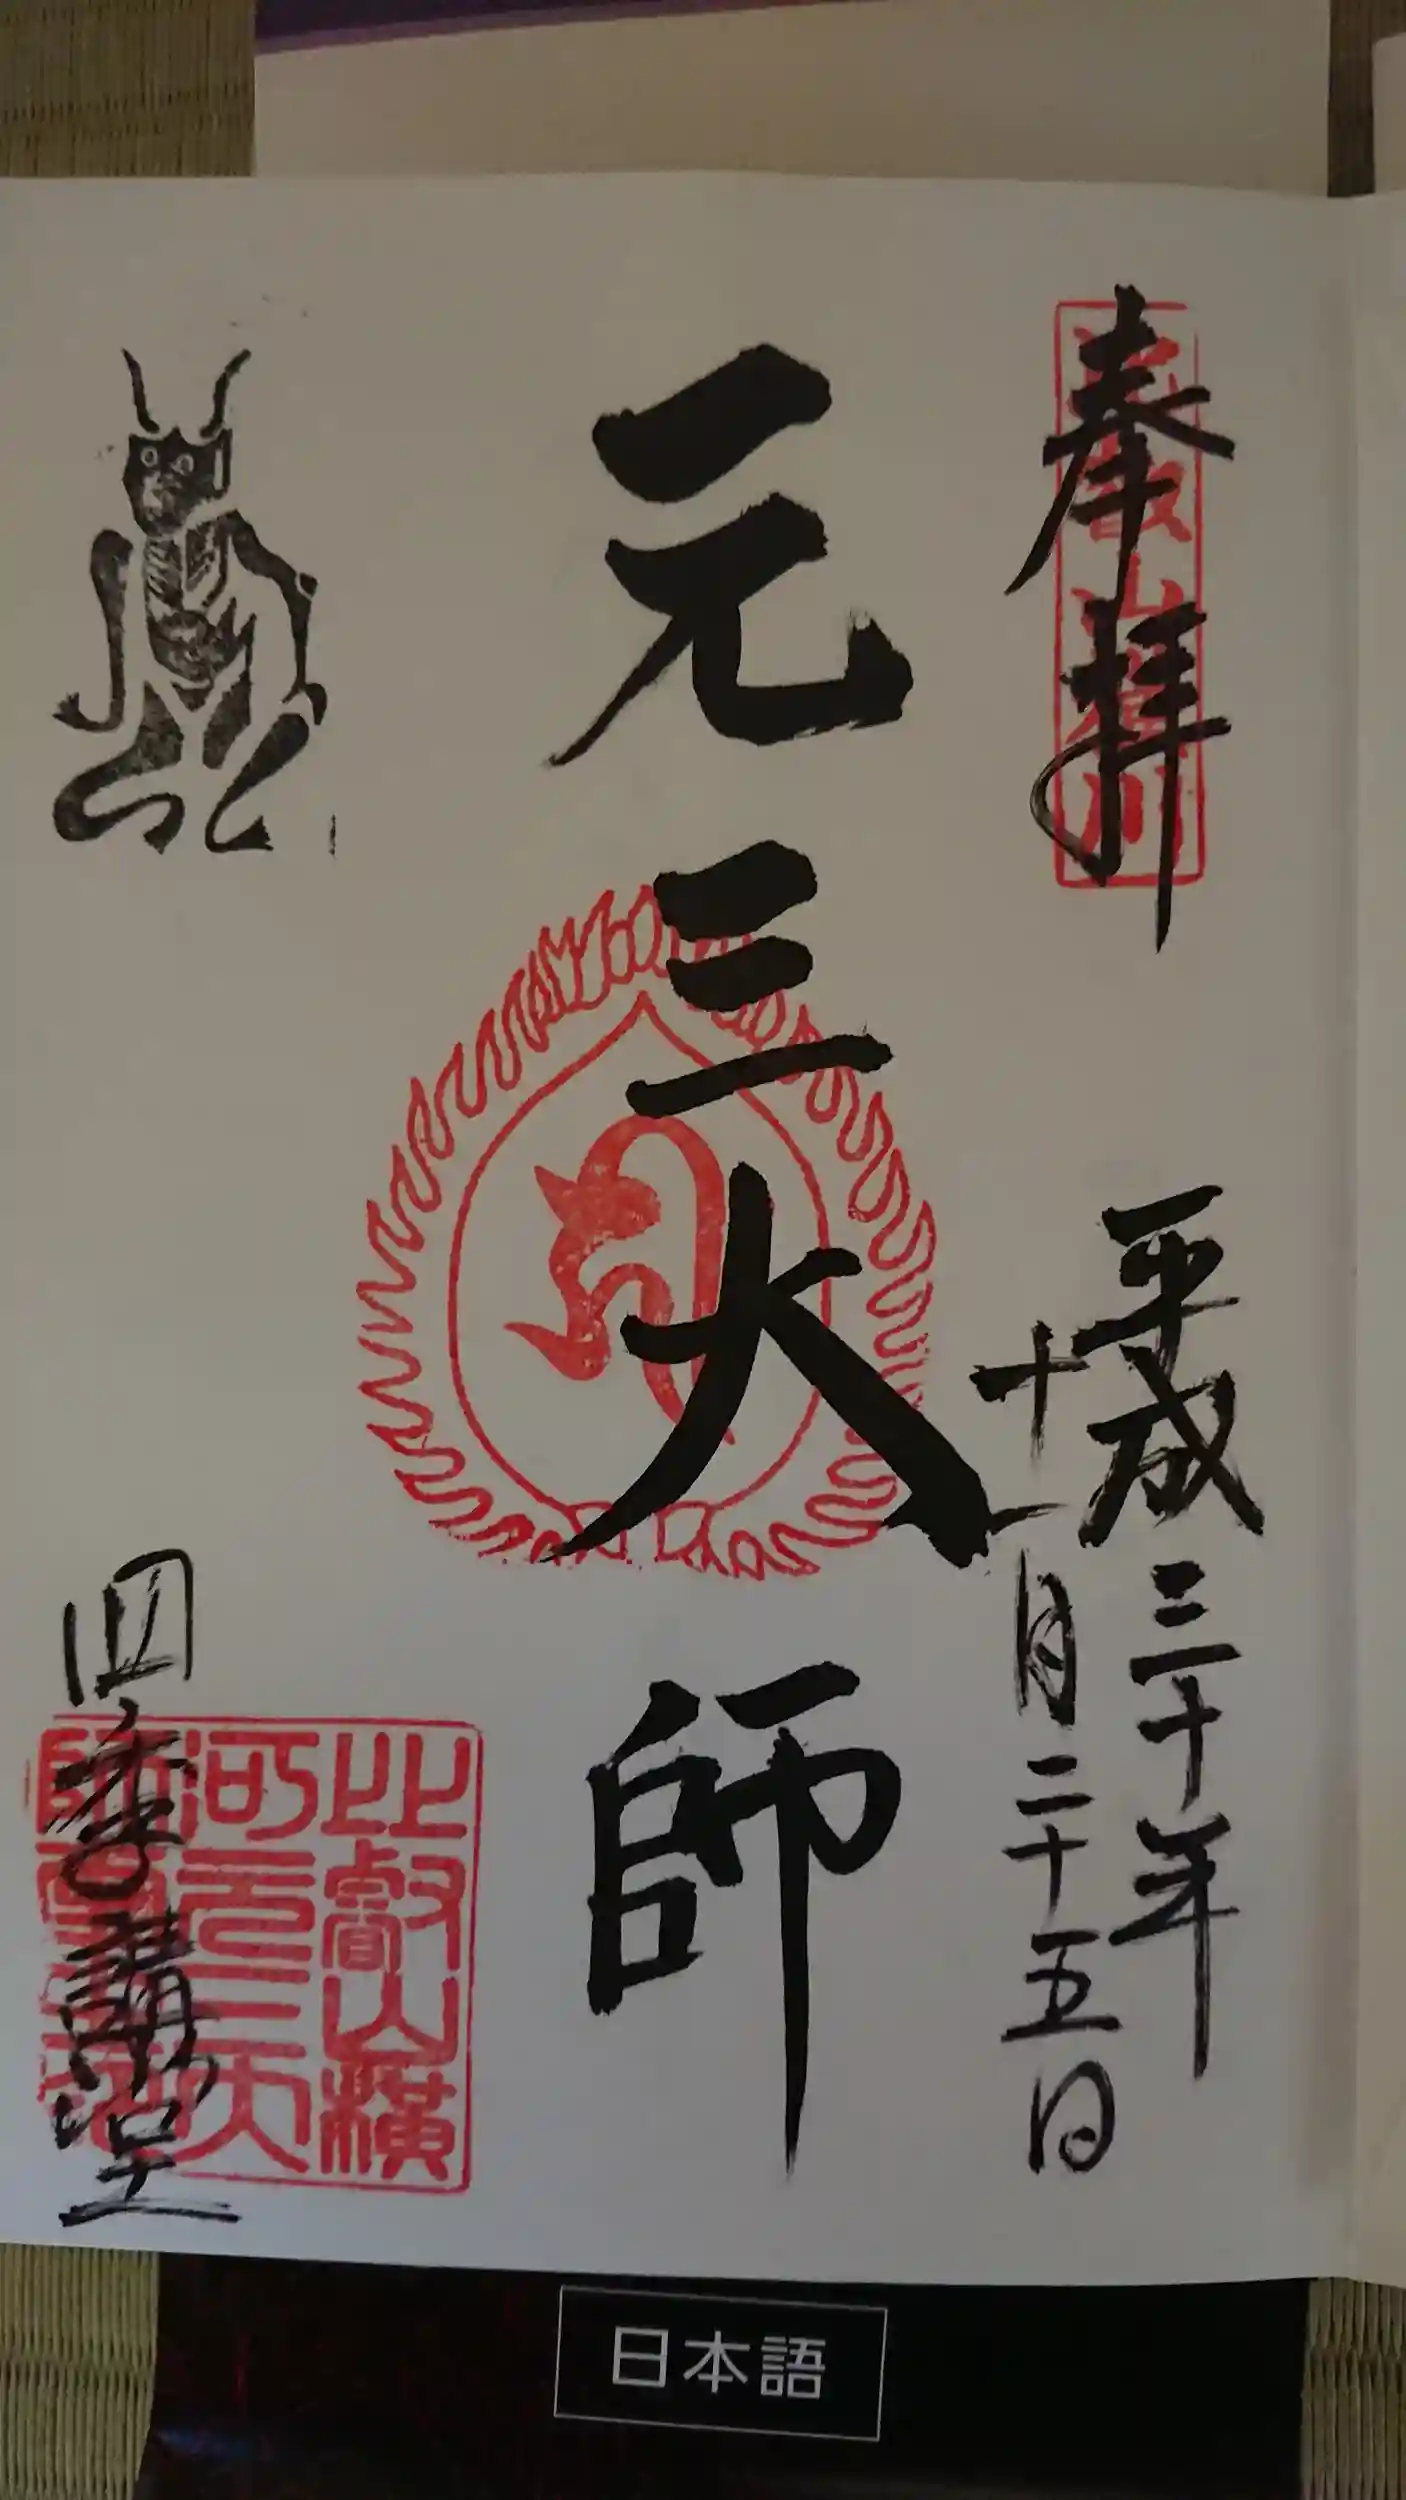 奉拝
比叡山横川
平成三十年
十一月二十五日
元三大師
四季講堂
比叡山横
川元三大
師
日本語